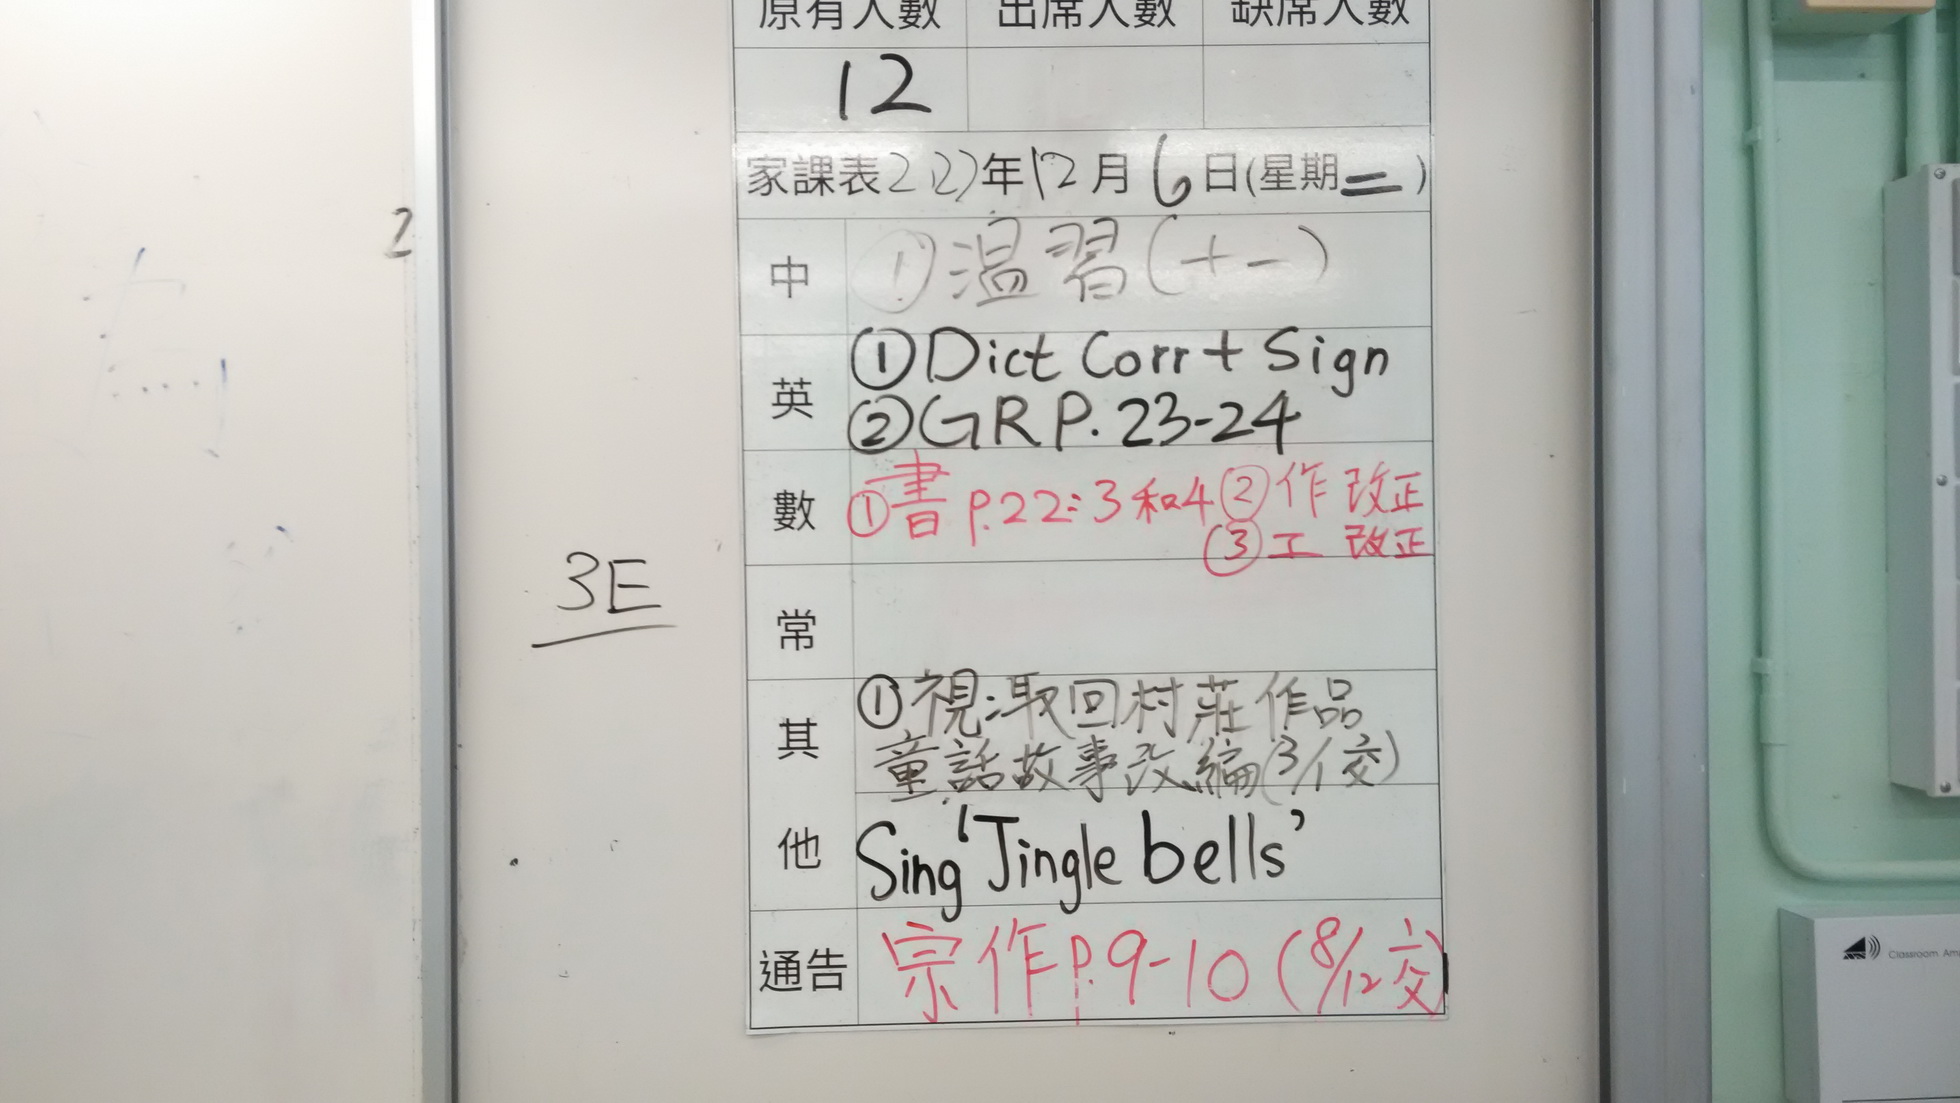 原有人數 出席人數 缺席人數
12
家課表2022年12月6日(星期二)
中 ①温習(十一)
英 ①Dict Corr + Sign
②GR P. 23-24
數 ①書 p.22:3和4 ②作 改正
③工 改正
3E
常
其他 ①視:取回村莊作品
童話故事改編(3/1交)
Sing 'Jingle bells'
通告 宗作P.9-10 (8/12交)
2